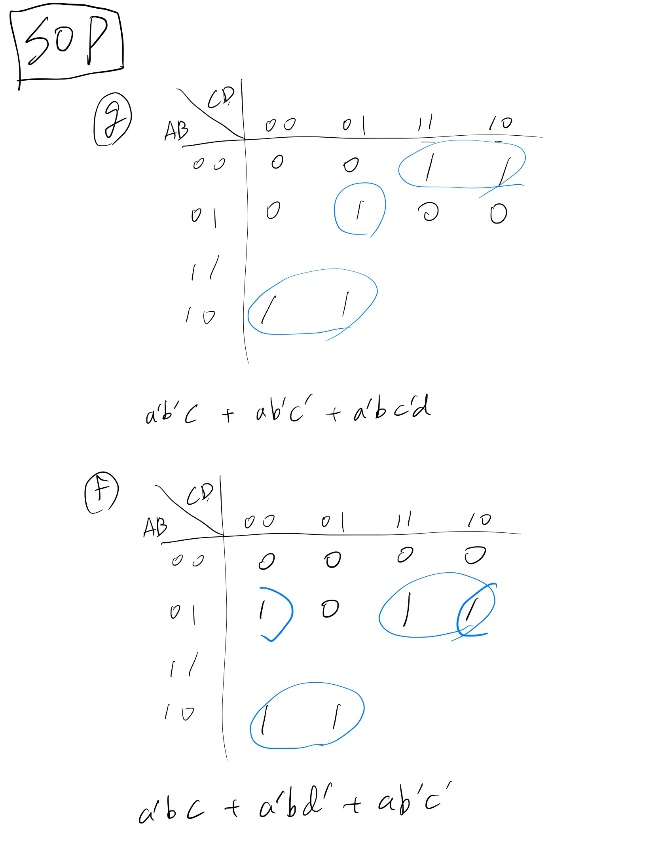 SOP
g
CD
AB 00 01 11 10
00 0 0 1 1
01 0 1 0 0
11
10 1 1
a'b'c + ab'c' + a'bc'd
f
CD
AB 00 01 11 10
00 0 0 0 0
01 1 0 1 1
11
10 1 1
a'bc + a'bd' + ab'c'